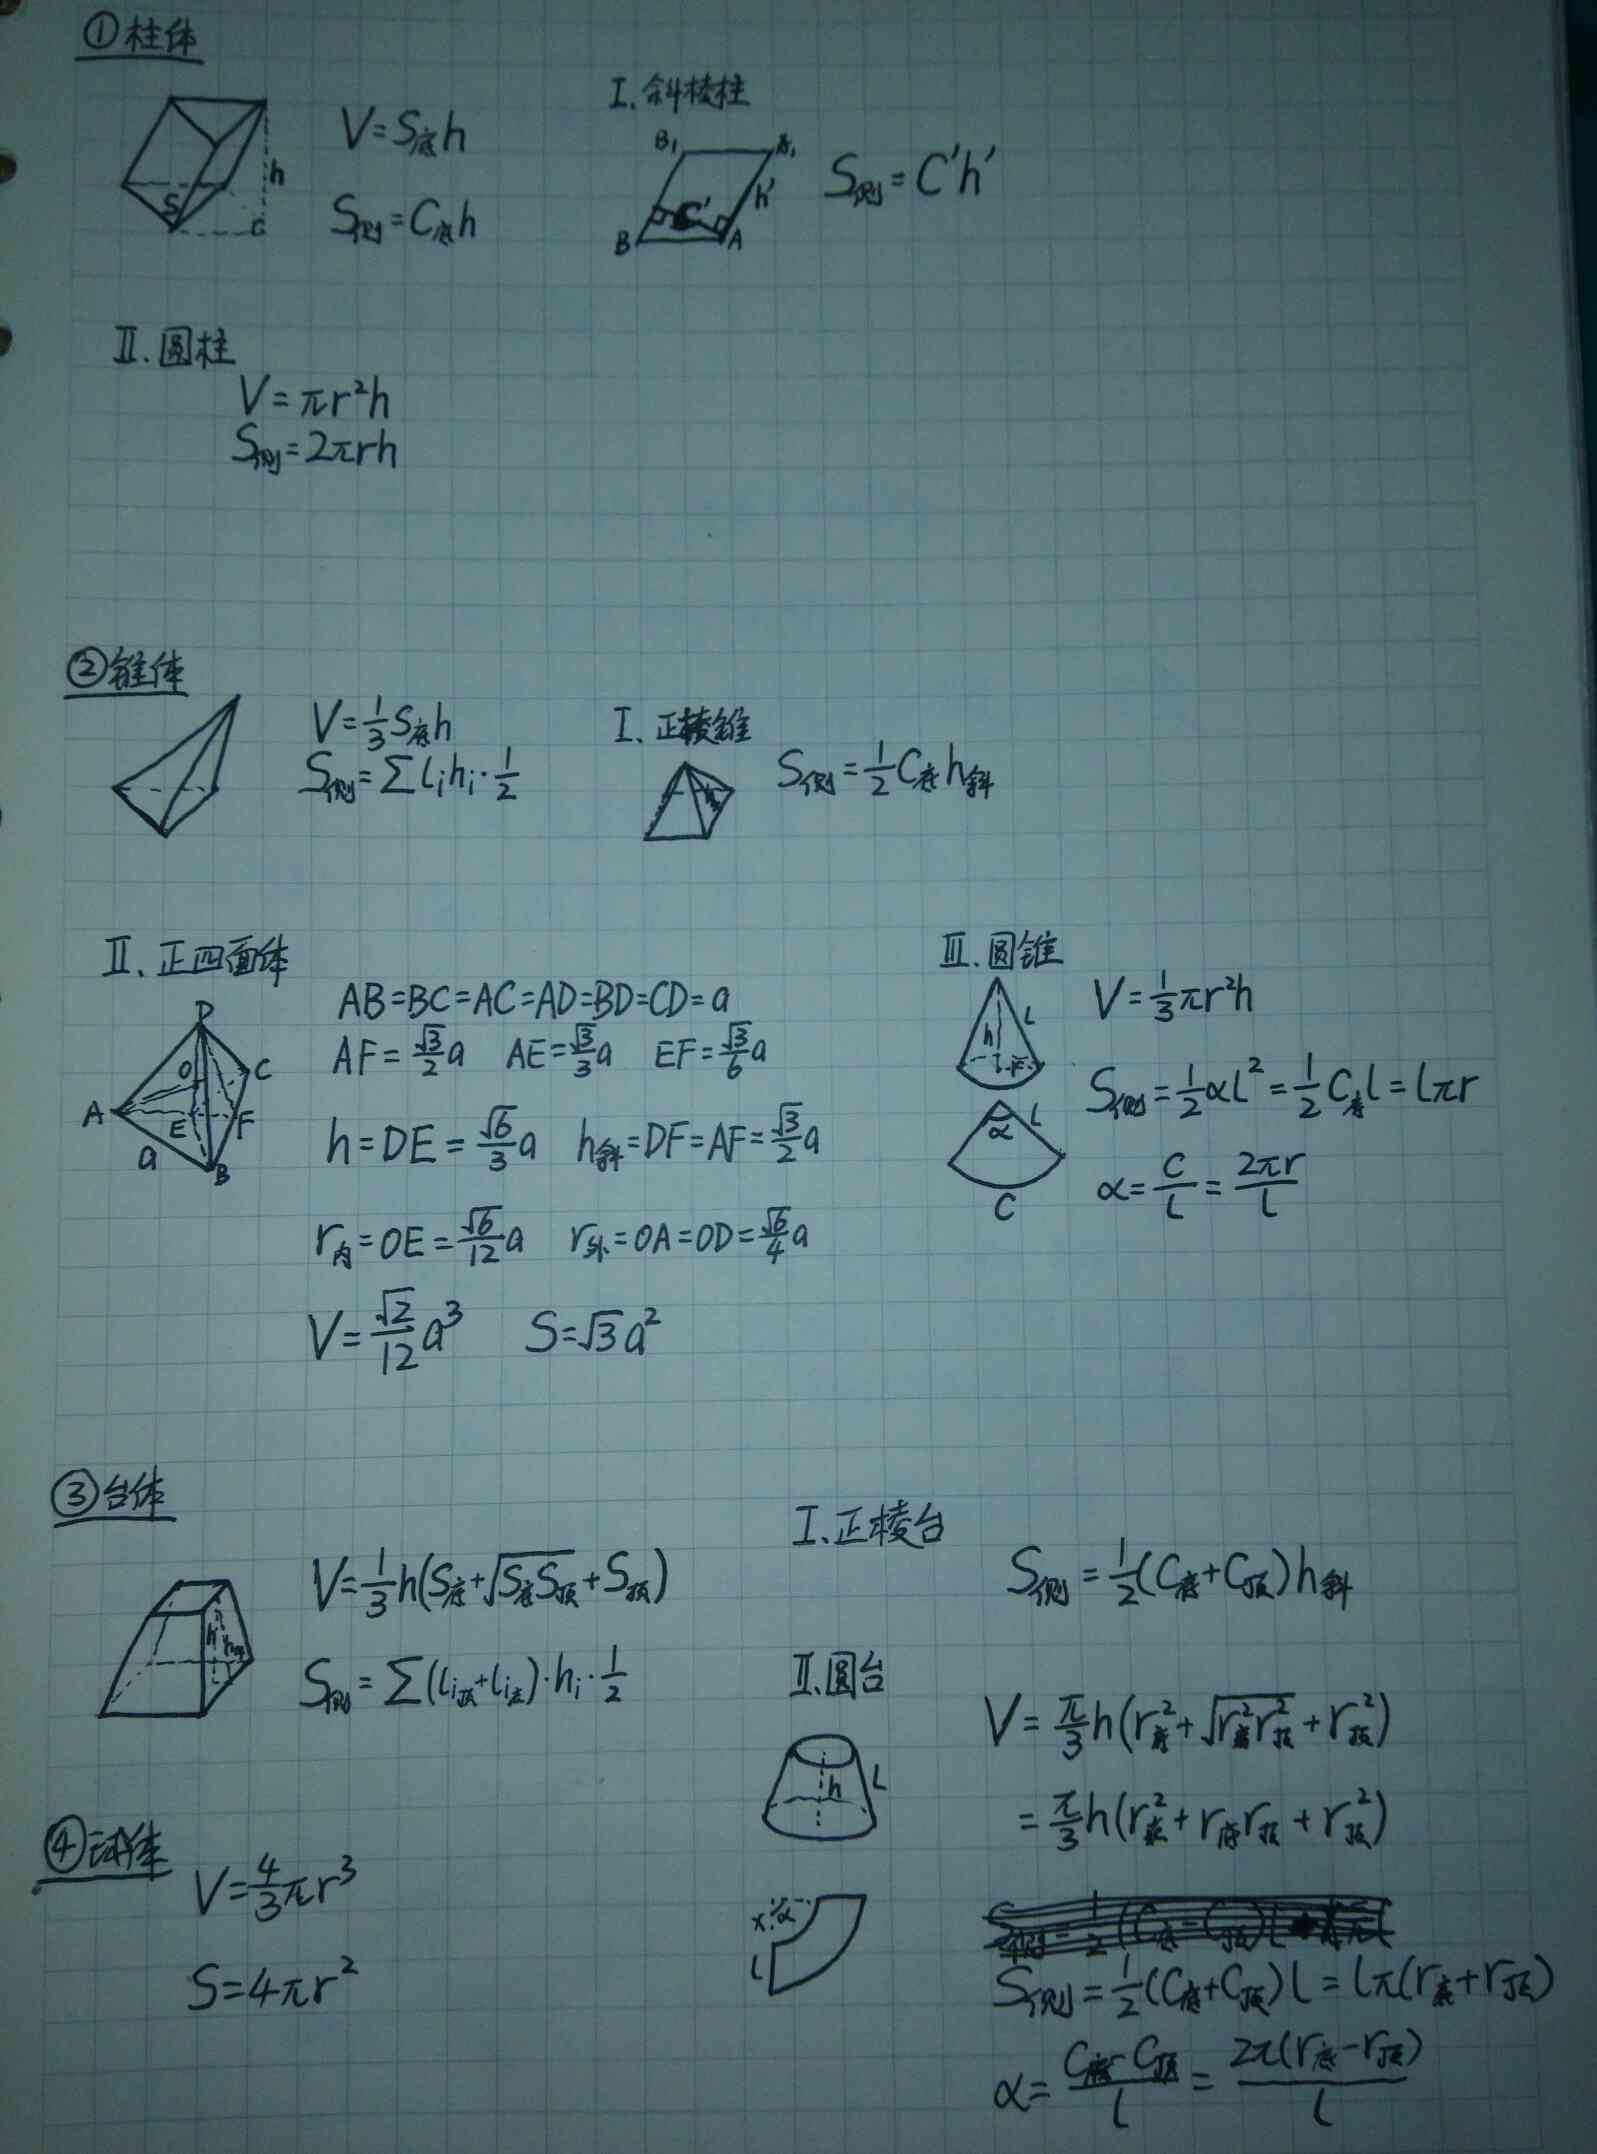 ①柱体
V=S底h
S侧=C底h
h
S
C
I.斜棱柱
B₁ A₁
C' h'
B A
S侧=C'h'
II.圆柱
V=πr²h
S侧=2πrh
②锥体
V=1/3 S底h
S侧=∑lᵢhᵢ·1/2
I.正棱锥
S侧=1/2 C底h斜
II.正四面体
D
O C
A E F
a B
AB=BC=AC=AD=BD=CD=a
AF=√3/2 a AE=√3/3 a EF=√3/6 a
h=DE=√6/3 a h斜=DF=AF=√3/2 a
r内=OE=√6/12 a r外=OA=OD=√6/4 a
V=√2/12 a³ S=√3a²
III.圆锥
h l
r
α l
C
V=1/3 πr²h
S侧=1/2 αl²=1/2 C底l=lπr
α=C/l=2πr/l
③台体
h
V=1/3 h(S底+√(S底S顶)+S顶)
S侧=∑(lᵢ顶+lᵢ底)·hᵢ·1/2
I.正棱台
S侧=1/2(C底+C顶)h斜
II.圆台
h l
V=π/3 h(r底²+√(r底²r顶²)+r顶²)
=π/3 h(r底²+r底r顶+r顶²)
x α
l
S侧=1/2(C底+C顶)l=lπ(r底+r顶)
α=(C底-C顶)/l=2π(r底-r顶)/l
④球体
V=4/3 πr³
S=4πr²